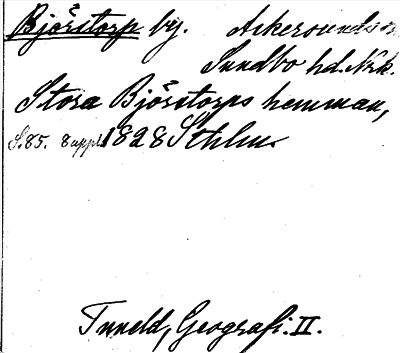 Björstorp by. Askersunds s
Sundbo hd. Nrk.
Stora Björstorps hemman,
S. 85. 8 appl. 1828 Sthlm.
Tuneld, Geografi. II.